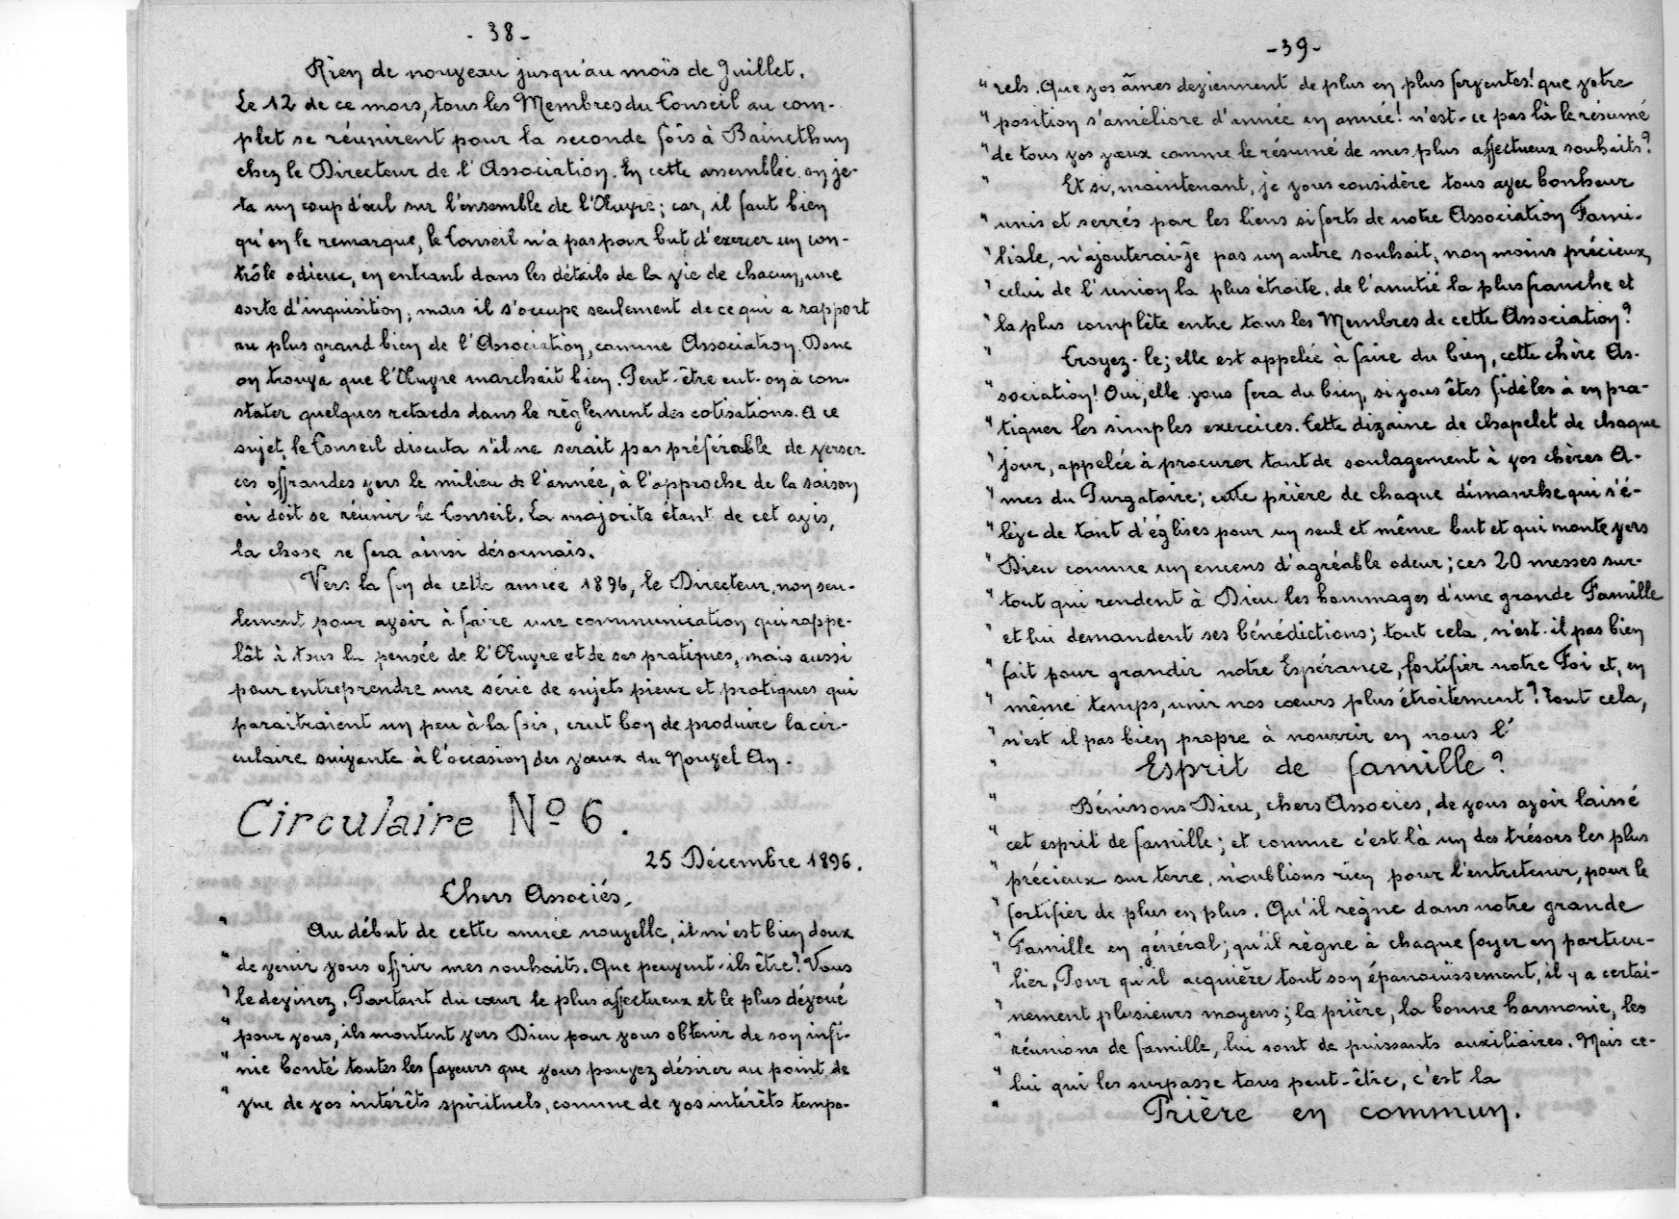 - 38 -
Rien de nouveau jusqu'au mois de Juillet.
Le 12 de ce mois, tous les Membres du Conseil au com-
plet se réunirent pour la seconde fois à Bainethun
chez le Directeur de l'Association. En cette assemblée on je-
ta un coup d'œil sur l'ensemble de l'Œuvre; car, il faut bien
qu'on le remarque, le Conseil n'a pas pour but d'exercer un con-
trôle odieux, en entrant dans les détails de la vie de chacun, une
sorte d'inquisition; mais il s'occupe seulement de ce qui a rapport
au plus grand bien de l'Association, comme Association. Donc
on trouva que l'Œuvre marchait bien. Peut-être eut-on à con-
stater quelques retards dans le règlement des cotisations. A ce
sujet, le Conseil discuta s'il ne serait pas préférable de verser
ces offrandes vers le milieu de l'année, à l'approche de la saison
où doit se réunir le Conseil. La majorité étant de cet avis,
la chose se fera ainsi désormais.
Vers la fin de cette année 1896, le Directeur, non seu-
lement pour avoir à faire une communication qui rappe-
lât à tous la pensée de l'Œuvre et de ses pratiques, mais aussi
pour entreprendre une série de sujets pieux et pratiques qui
paraitraient un peu à la fois, crut bon de produire la cir-
culaire suivante à l'occasion des vœux du Nouvel An.
Circulaire Nº 6.
25 Décembre 1896.
Chers Associés,
" Au début de cette année nouvelle, il m'est bien doux
" de venir vous offrir mes souhaits. Que peuvent-ils être? Vous
" le devinez. Partant du cœur le plus affectueux et le plus dévoué
" pour vous, ils montent vers Dieu pour vous obtenir de son infi-
" nie bonté toutes les faveurs que vous pouvez désirer au point de
" vue de vos intérêts spirituels, comme de vos intérêts tempo-
- 39 -
" rels. Que vos âmes deviennent de plus en plus ferventes! que votre
" position s'améliore d'année en année! n'est-ce pas là le résumé
" de tous vos vœux comme le résumé de mes plus affectueux souhaits?
" Et si, maintenant, je vous considère tous avec bonheur
" unis et serrés par les liens si forts de notre Association Fami-
" liale, n'ajouterai-je pas un autre souhait, non moins précieux,
" celui de l'union la plus étroite, de l'amitié la plus franche et
" la plus complète entre tous les Membres de cette Association?
" Croyez-le; elle est appelée à faire du bien, cette chère As-
" sociation! Oui, elle vous fera du bien, si vous êtes fidèles à en pra-
" tiquer les simples exercices. Cette dizaine de chapelet de chaque
" jour, appelée à procurer tant de soulagement à vos chères A-
" mes du Purgatoire; cette prière de chaque dimanche qui s'é-
" lève de tant d'églises pour un seul et même but et qui monte vers
" Dieu comme un encens d'agréable odeur; ces 20 messes sur-
" tout qui rendent à Dieu les hommages d'une grande Famille
" et lui demandent ses bénédictions; tout cela, n'est-il pas bien
" fait pour grandir notre Espérance, fortifier notre Foi et, en
" même temps, unir nos cœurs plus étroitement? Tout cela,
" n'est il pas bien propre à nourrir en nous l'
" Esprit de famille?
" Bénissons Dieu, chers Associés, de vous avoir laissé
" cet esprit de famille; et comme c'est là un des trésors les plus
" précieux sur terre, n'oublions rien pour l'entretenir, pour le
" fortifier de plus en plus. Qu'il règne dans notre grande
" Famille en général; qu'il règne à chaque foyer en particu-
" lier. Pour qu'il acquière tout son épanouissement, il y a certai-
" nement plusieurs moyens; la prière, la bonne harmonie, les
" réunions de famille, lui sont de puissants auxiliaires. Mais ce-
" lui qui les surpasse tous peut-être, c'est la
" Prière en commun.